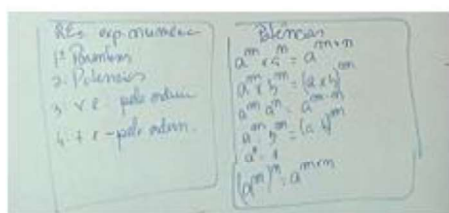 REs exp. numéric
1º Parenteses
2. Potencias
3. x e : pela ordem
4. + e - pela ordem.
Potências
aᵐ x aⁿ = aᵐ⁺ⁿ
aᵐ x bᵐ = (a x b)ᵐ
aᵐ : aⁿ = aᵐ⁻ⁿ
aᵐ : bᵐ = (a : b)ᵐ
a⁰ = 1
(aᵐ)ⁿ = aᵐˣⁿ